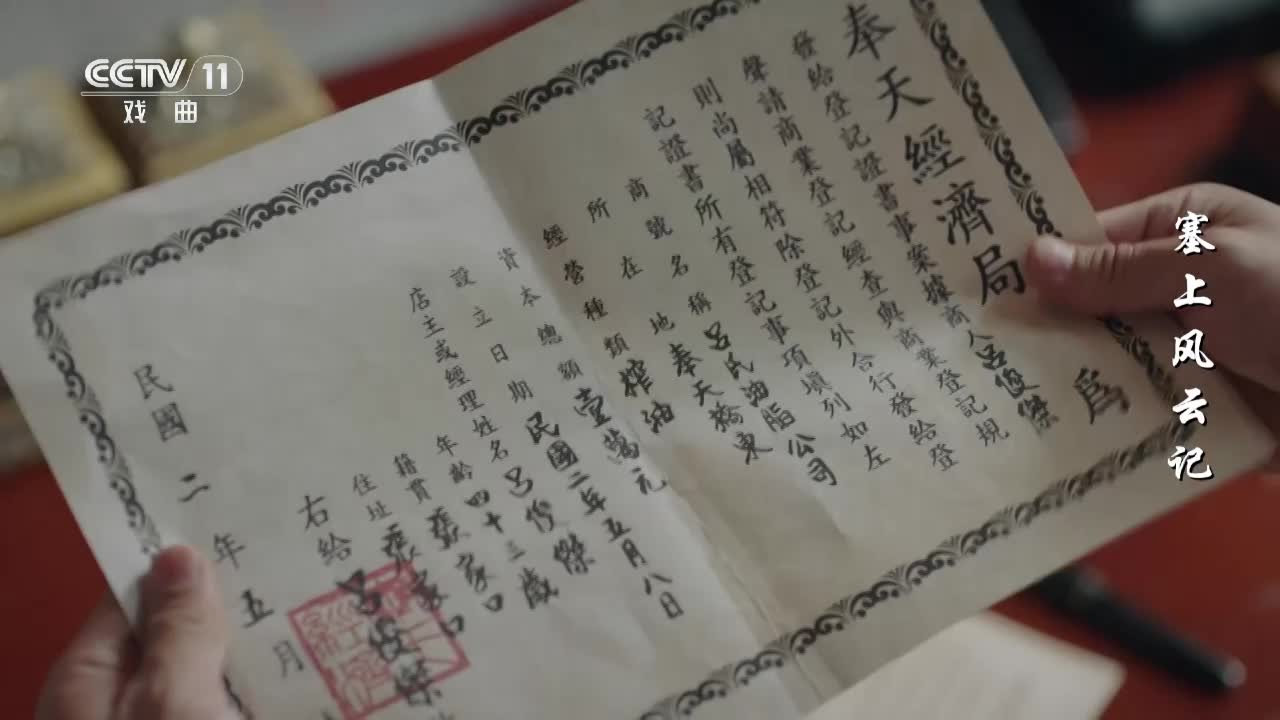 CCTV 11
戏曲
塞上风云记
奉天經濟局
爲
發給登記證書事案據商人呂俊傑
聲請商業登記經查與商業登記規
則尚屬相符除登記外合行發給登
記證書所有登記事項填列如左
商號名稱 呂氏油脂公司
所在地 奉天橋東
經營種類 榨油
資本總額 壹萬元
設立日期 民國二年五月八日
店主或經理姓名 呂俊傑
年齡 四十三歲
籍貫 張家口
住址 張家口
右給 呂俊傑
民國二年五月